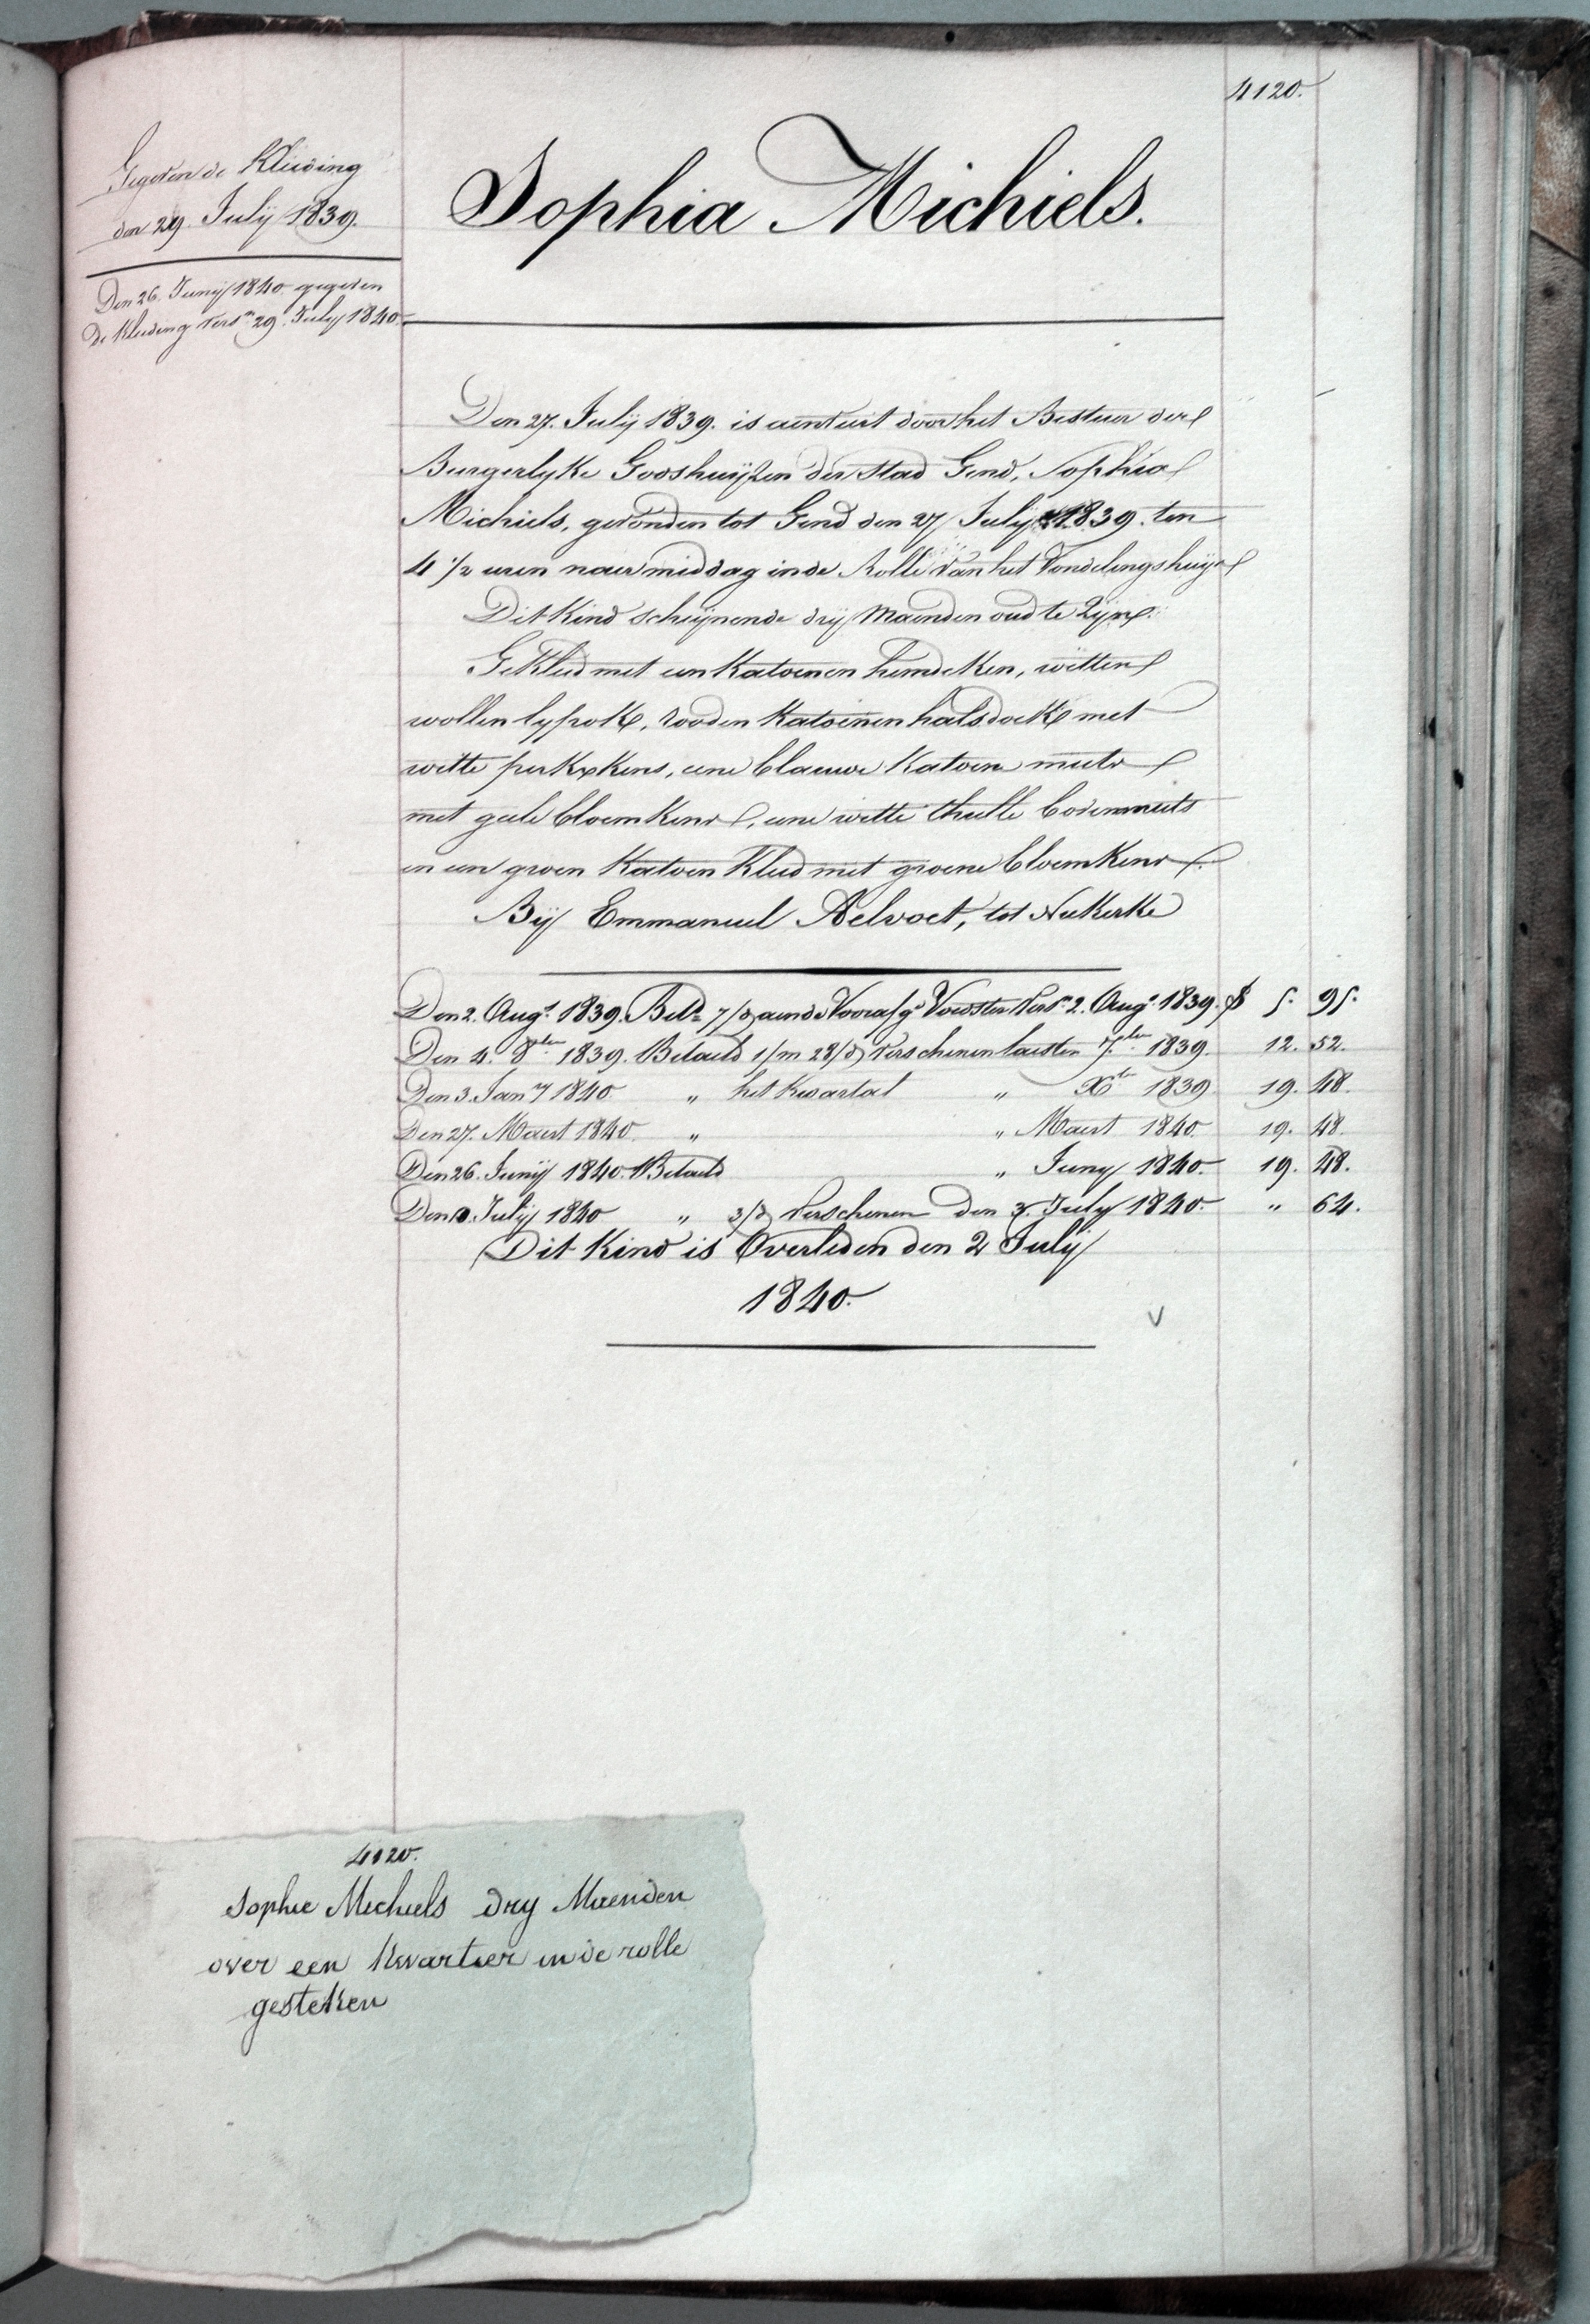 4120.
Gegeven de Kleeding
den 29. Julij 1839.
Den 26. Junij 1840 gegeven
De Kleeding vers.en 29. July 1840.
Sophia Michiels.
Den 27. Julij 1839. is aenveirt door het Bestuer der
Burgerlyke Godshuijzen der Stad Gend, Sophia
Michiels, gevonden tot Gend den 27 Julij 1839. ten
4 1/2 uren naermiddag in de Rolle van het Vondelingshuijs
Dit Kind scheijnende drij Maenden oud te Zijn.
Gekleed met een Katoenen hemdeken, witten
wollen lyfrok, rooden Katoenen halsdoek met
witte perkxkens, eene blauwe Katoene muts
met geele bloemkens, eene witte thulle bovenmuts
en een groen Katoen Kleed met groene bloemkens.
Bij Emmanuel Aelvoet, tot Nukerke
Den 2. Aug.t 1839. Bet.d 7/d aen de Voorafg.e Voedster Vers.n 2. Aug.t 1839. 5. 95.
Den 4. 8ber 1839. Betaeld 1/m 28/d Verschenen laesten 7ber 1839. 12. 52.
Den 3. Jan.ry 1840 " het Kwartael " Xbr 1839 19. 48.
Den 27. Maert 1840 " " Maert 1840. 19. 48.
Den 26. Junij 1840. Betaeld " Juny 1840. 19. 48.
Den Julij 1840 " 3/d Verschenen Den 3. July 1840. " 64.
Dit Kind is Overleden den 2 Julij
1840.
4120.
Sophie Michiels Dry Maenden
over een Kwartier in de rolle
gesteken